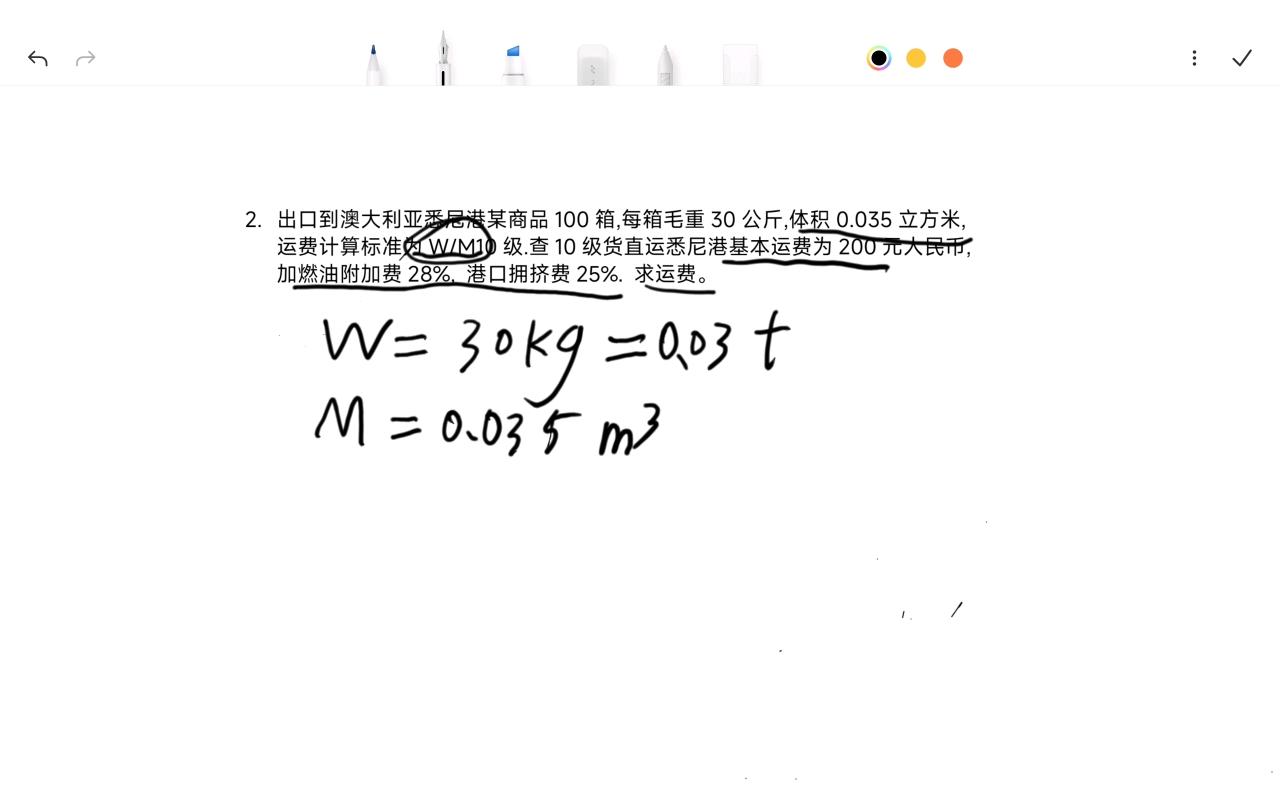 2. 出口到澳大利亚悉尼港某商品 100 箱,每箱毛重 30 公斤,体积 0.035 立方米,
运费计算标准为 W/M10 级.查 10 级货直运悉尼港基本运费为 200 元人民币,
加燃油附加费 28%, 港口拥挤费 25%. 求运费。
W = 30kg = 0.03 t
M = 0.035 m³